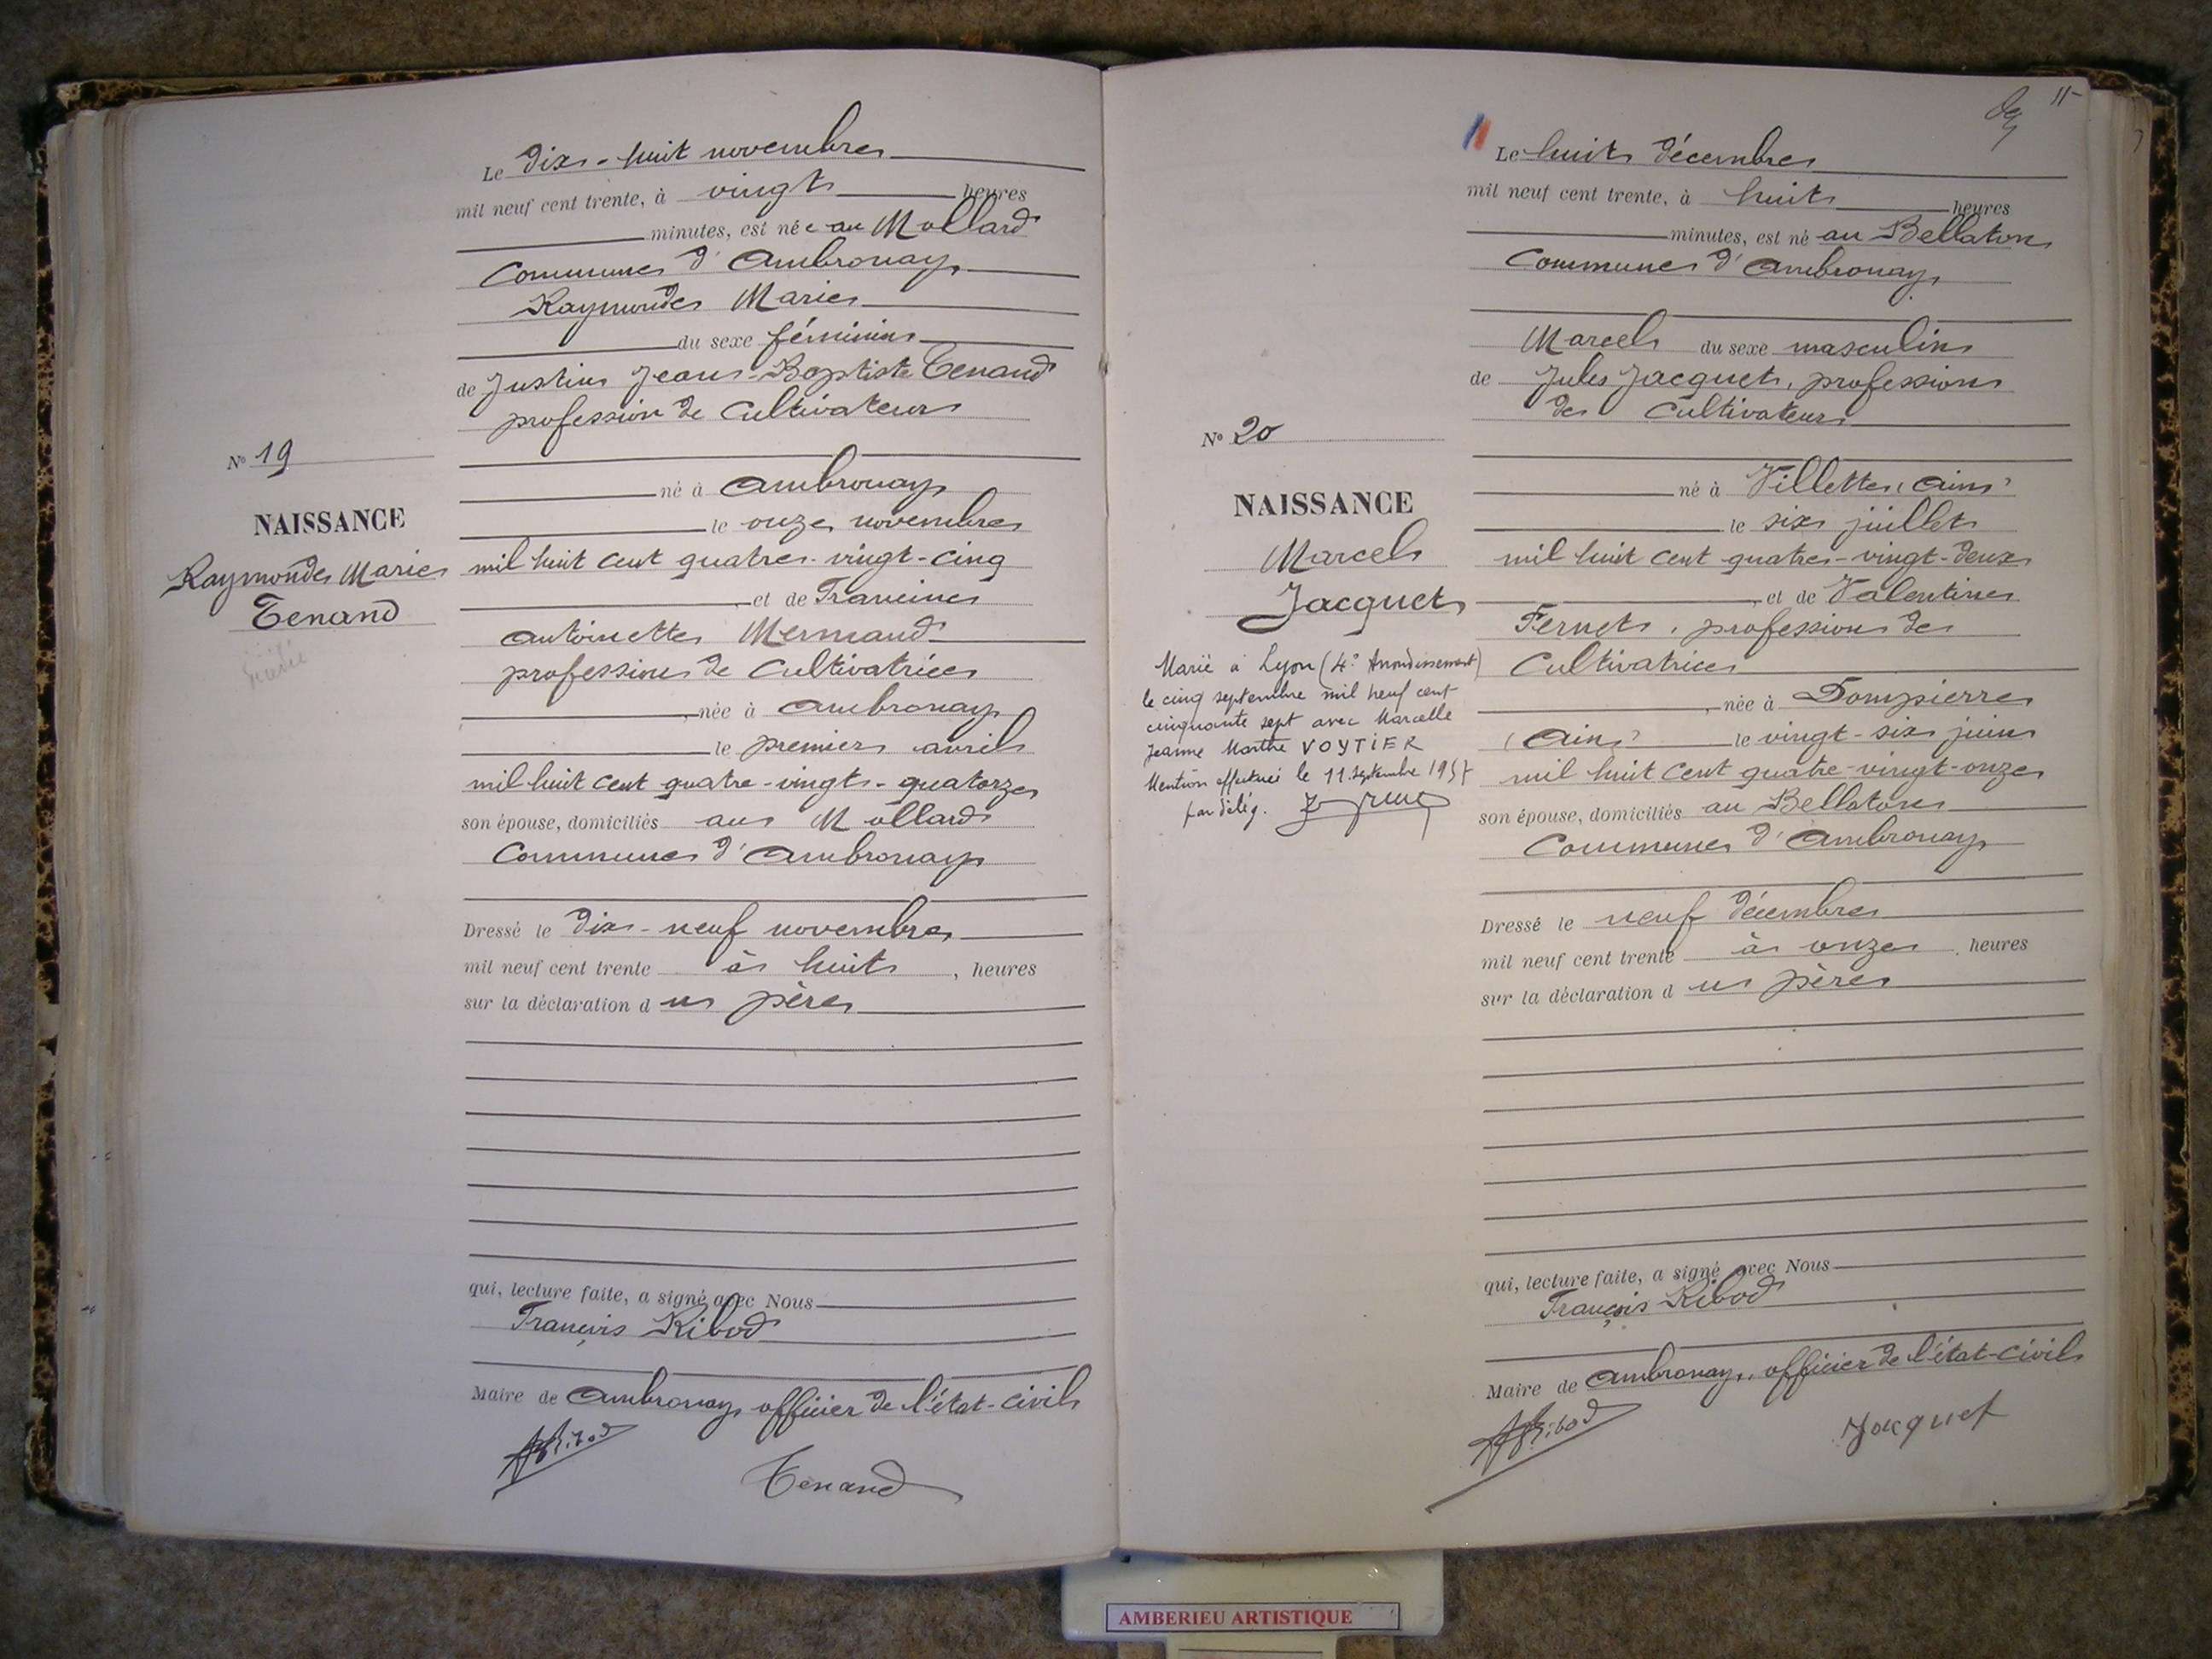 Le dix-huit novembre
mil neuf cent trente, à vingt heures
minutes, est née au Mollard
Commune d'Ambronay
Raymonde Marie
du sexe féminin
de Justin Jean-Baptiste Tenand
profession de Cultivateur
né à Ambronay
le onze novembre
mil huit cent quatre-vingt-cinq
et de Francine
Antoinette Mermand
profession de Cultivatrice
née à Ambronay
le premier avril
mil huit cent quatre-vingt-quatorze
son épouse, domiciliés au Mollard
Commune d'Ambronay
Dressé le dix-neuf novembre
mil neuf cent trente à huit, heures
sur la déclaration du père
qui, lecture faite, a signé avec Nous
François Ribod
Maire de Ambronay, officier de l'état-civil
Ribod
Tenand
N° 19
NAISSANCE
Raymonde Marie
Tenand
11
Le huit décembre
mil neuf cent trente, à huit heures
minutes, est né au Bellaton
Commune d'Ambronay
Marcel du sexe masculin
de Jules Jacquet, profession
de Cultivateur
né à Villette (Ain)
le six juillet
mil huit cent quatre-vingt-deux
et de Valentine
Fernet, profession de
Cultivatrice
née à Dompierre
(Ain) le vingt-six juin
mil huit cent quatre-vingt-onze
son épouse, domiciliés au Bellaton
Commune d'Ambronay
Dressé le neuf décembre
mil neuf cent trente à onze heures
sur la déclaration du père
qui, lecture faite, a signé avec Nous
François Ribod
Maire de Ambronay, officier de l'état-civil
Ribod
Jacquet
N° 20
NAISSANCE
Marcel
Jacquet
Marié à Lyon (4e Arrondissement)
le cinq septembre mil neuf cent
cinquante sept avec Marcelle
Jeanne Marthe VOYTIER
Mention effectuée le 11 septembre 1957
par délég.
AMBERIEU ARTISTIQUE